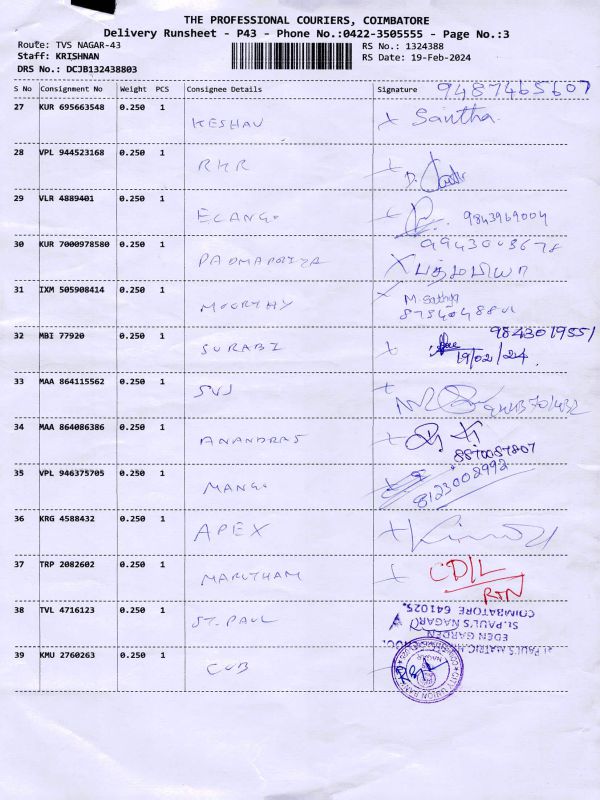 THE PROFESSIONAL COURIERS, COIMBATORE
Delivery Runsheet - P43 - Phone No.:0422-3505555 - Page No.:3
Route: TVS NAGAR-43 RS No.: 1324388
Staff: KRISHNAN RS Date: 19-Feb-2024
DRS No.: DCJB132438803
S No Consignment No Weight PCS Consignee Details Signature 9487465607
27 KUR 695663548 0.250 1 KESHAV Saritha
28 VPL 944523168 0.250 1 RKR
29 VLR 4889401 0.250 1 ELANGO 9843969004
9943003678
30 KUR 7000978580 0.250 1 PADMAPRIYA பத்மபிரியா
31 IXM 505908414 0.250 1 MOORTHY M. Sathya
9843019551
32 MBI 77920 0.250 1 SURABI
19/02/24
33 MAA 864115562 0.250 1 SVJ
34 MAA 864086386 0.250 1 ANANDRAJ
8870087807
35 VPL 946375705 0.250 1 MANGO
8123002992
36 KRG 4588432 0.250 1 APEX
37 TRP 2082602 0.250 1 MARUTHAM CD/L
RTN
38 TVL 4716123 0.250 1 ST. PAUL
COIMBATORE 641025.
ST. PAUL'S NAGAR
EDEN GARDEN
ST. PAUL'S MATRIC.
39 KMU 2760263 0.250 1 CUB
CITY UNION BANK